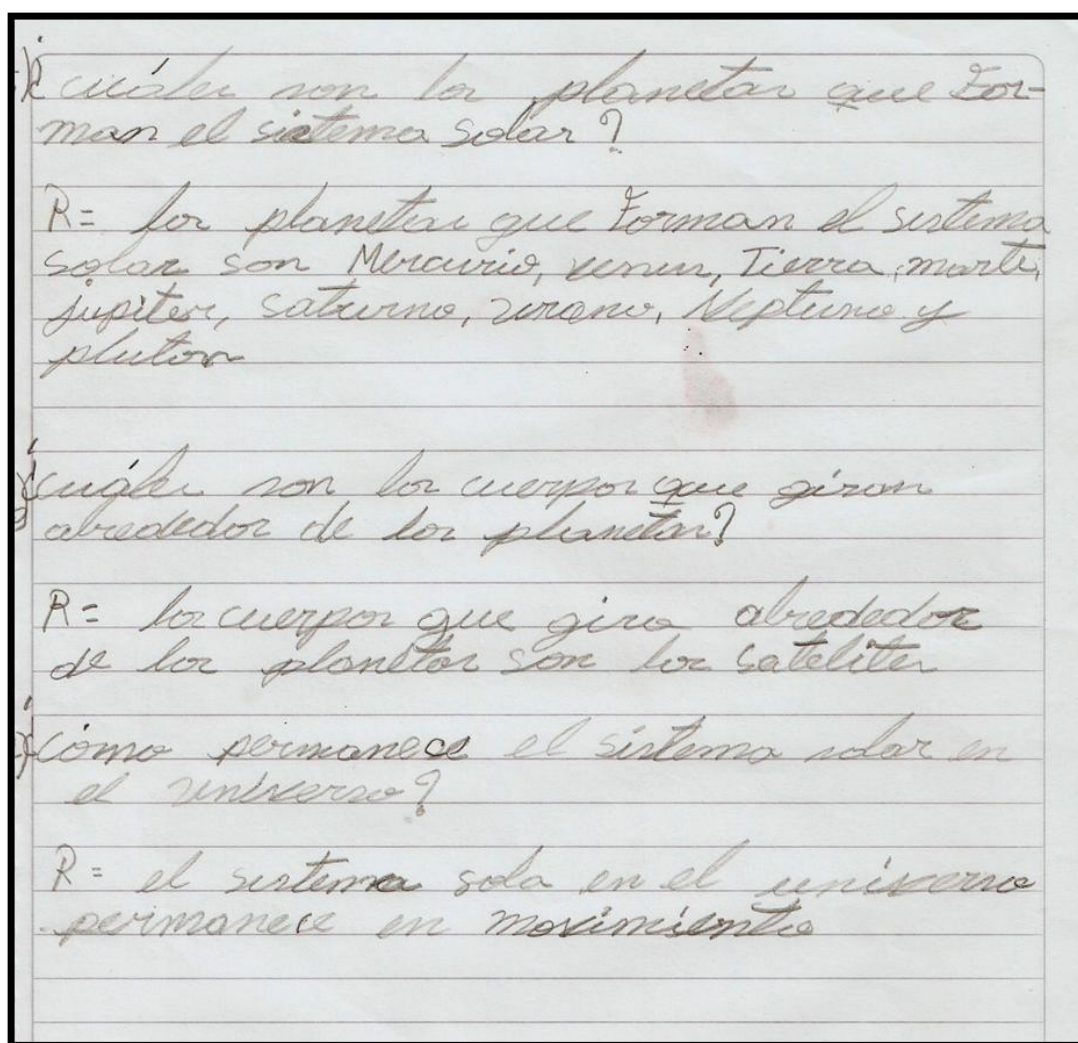 ¿cuáles son los planetas que For-
man el sistema solar?
R= los planetas que Forman el sistema
solar son Mercurio, venus, Tierra, marte,
jupiter, saturno, urano, Neptuno y
pluton
¿cuáles son los cuerpos que giran
alrededor de los planetas?
R= los cuerpos que gira alrededor
de los planetas son los sateliter
¿cómo permanece el sistema solar en
el universo?
R= el sistema sola en el universo
permanece en movimiento